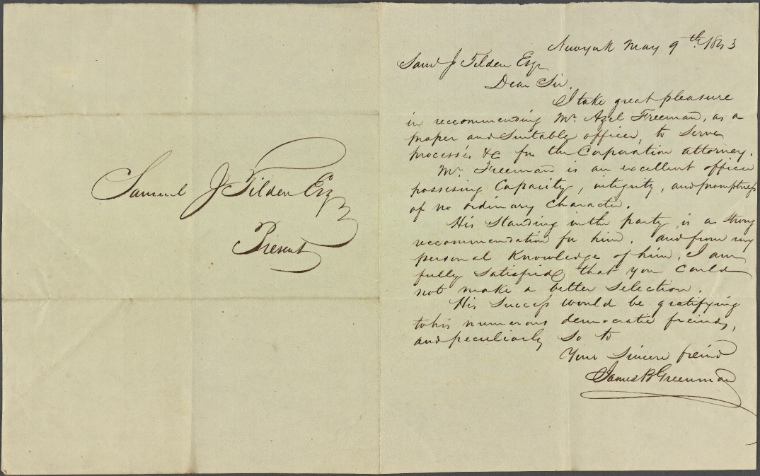 Samuel J Tilden Esq
Present
Newyork May 9th 1843
Saml J Tilden Esqr
Dear Sir.
I take great pleasure
in reccommending Mr Azel Freeman, as a
proper and Suitable officer, to Serve
process's &c for the Corporation attorney.
Mr. Freeman is an excellent officer
possessing Capacity, integrity, and promptness
of no ordinary Character.
His Standing in the party, is a strong
reccommendation for him. and from my
personal Knowledge of him, I am
fully Satisfied that you Could
not make a better Selection.
His Success would be gratifying
to his numerous democratic freinds,
and peculiarly So to
Your Sincere freind
James B Greenman